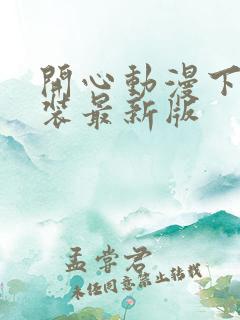 開心動漫下
裝最新版
孟嘗君
未经同意禁止转载